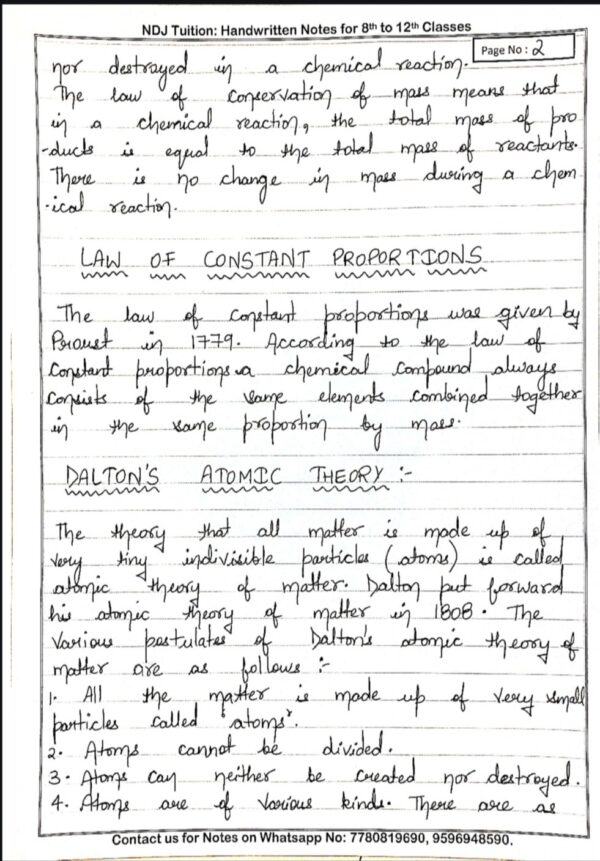 NDJ Tuition: Handwritten Notes for 8th to 12th Classes
Page No : 2
nor destroyed in a chemical reaction.
The law of conservation of mass means that
in a chemical reaction, the total mass of pro
-ducts is equal to the total mass of reactants.
There is no change in mass during a chem
-ical reaction.
LAW OF CONSTANT PROPORTIONS
The law of constant proportions was given by
Proust in 1779. According to the law of
Constant proportions a chemical compound always
consists of the same elements combined together
in the same proportion by mass.
DALTON'S ATOMIC THEORY :-
The theory that all matter is made up of
very tiny indivisible particles (atoms) is called
atomic theory of matter. Dalton put forward
his atomic theory of matter in 1808. The
various postulates of Dalton's atomic theory of
matter are as follows :-
1. All the matter is made up of very small
particles called "atoms".
2. Atoms cannot be divided.
3. Atoms can neither be created nor destroyed.
4. Atoms are of various kinds. There are as
Contact us for Notes on Whatsapp No: 7780819690, 9596948590.